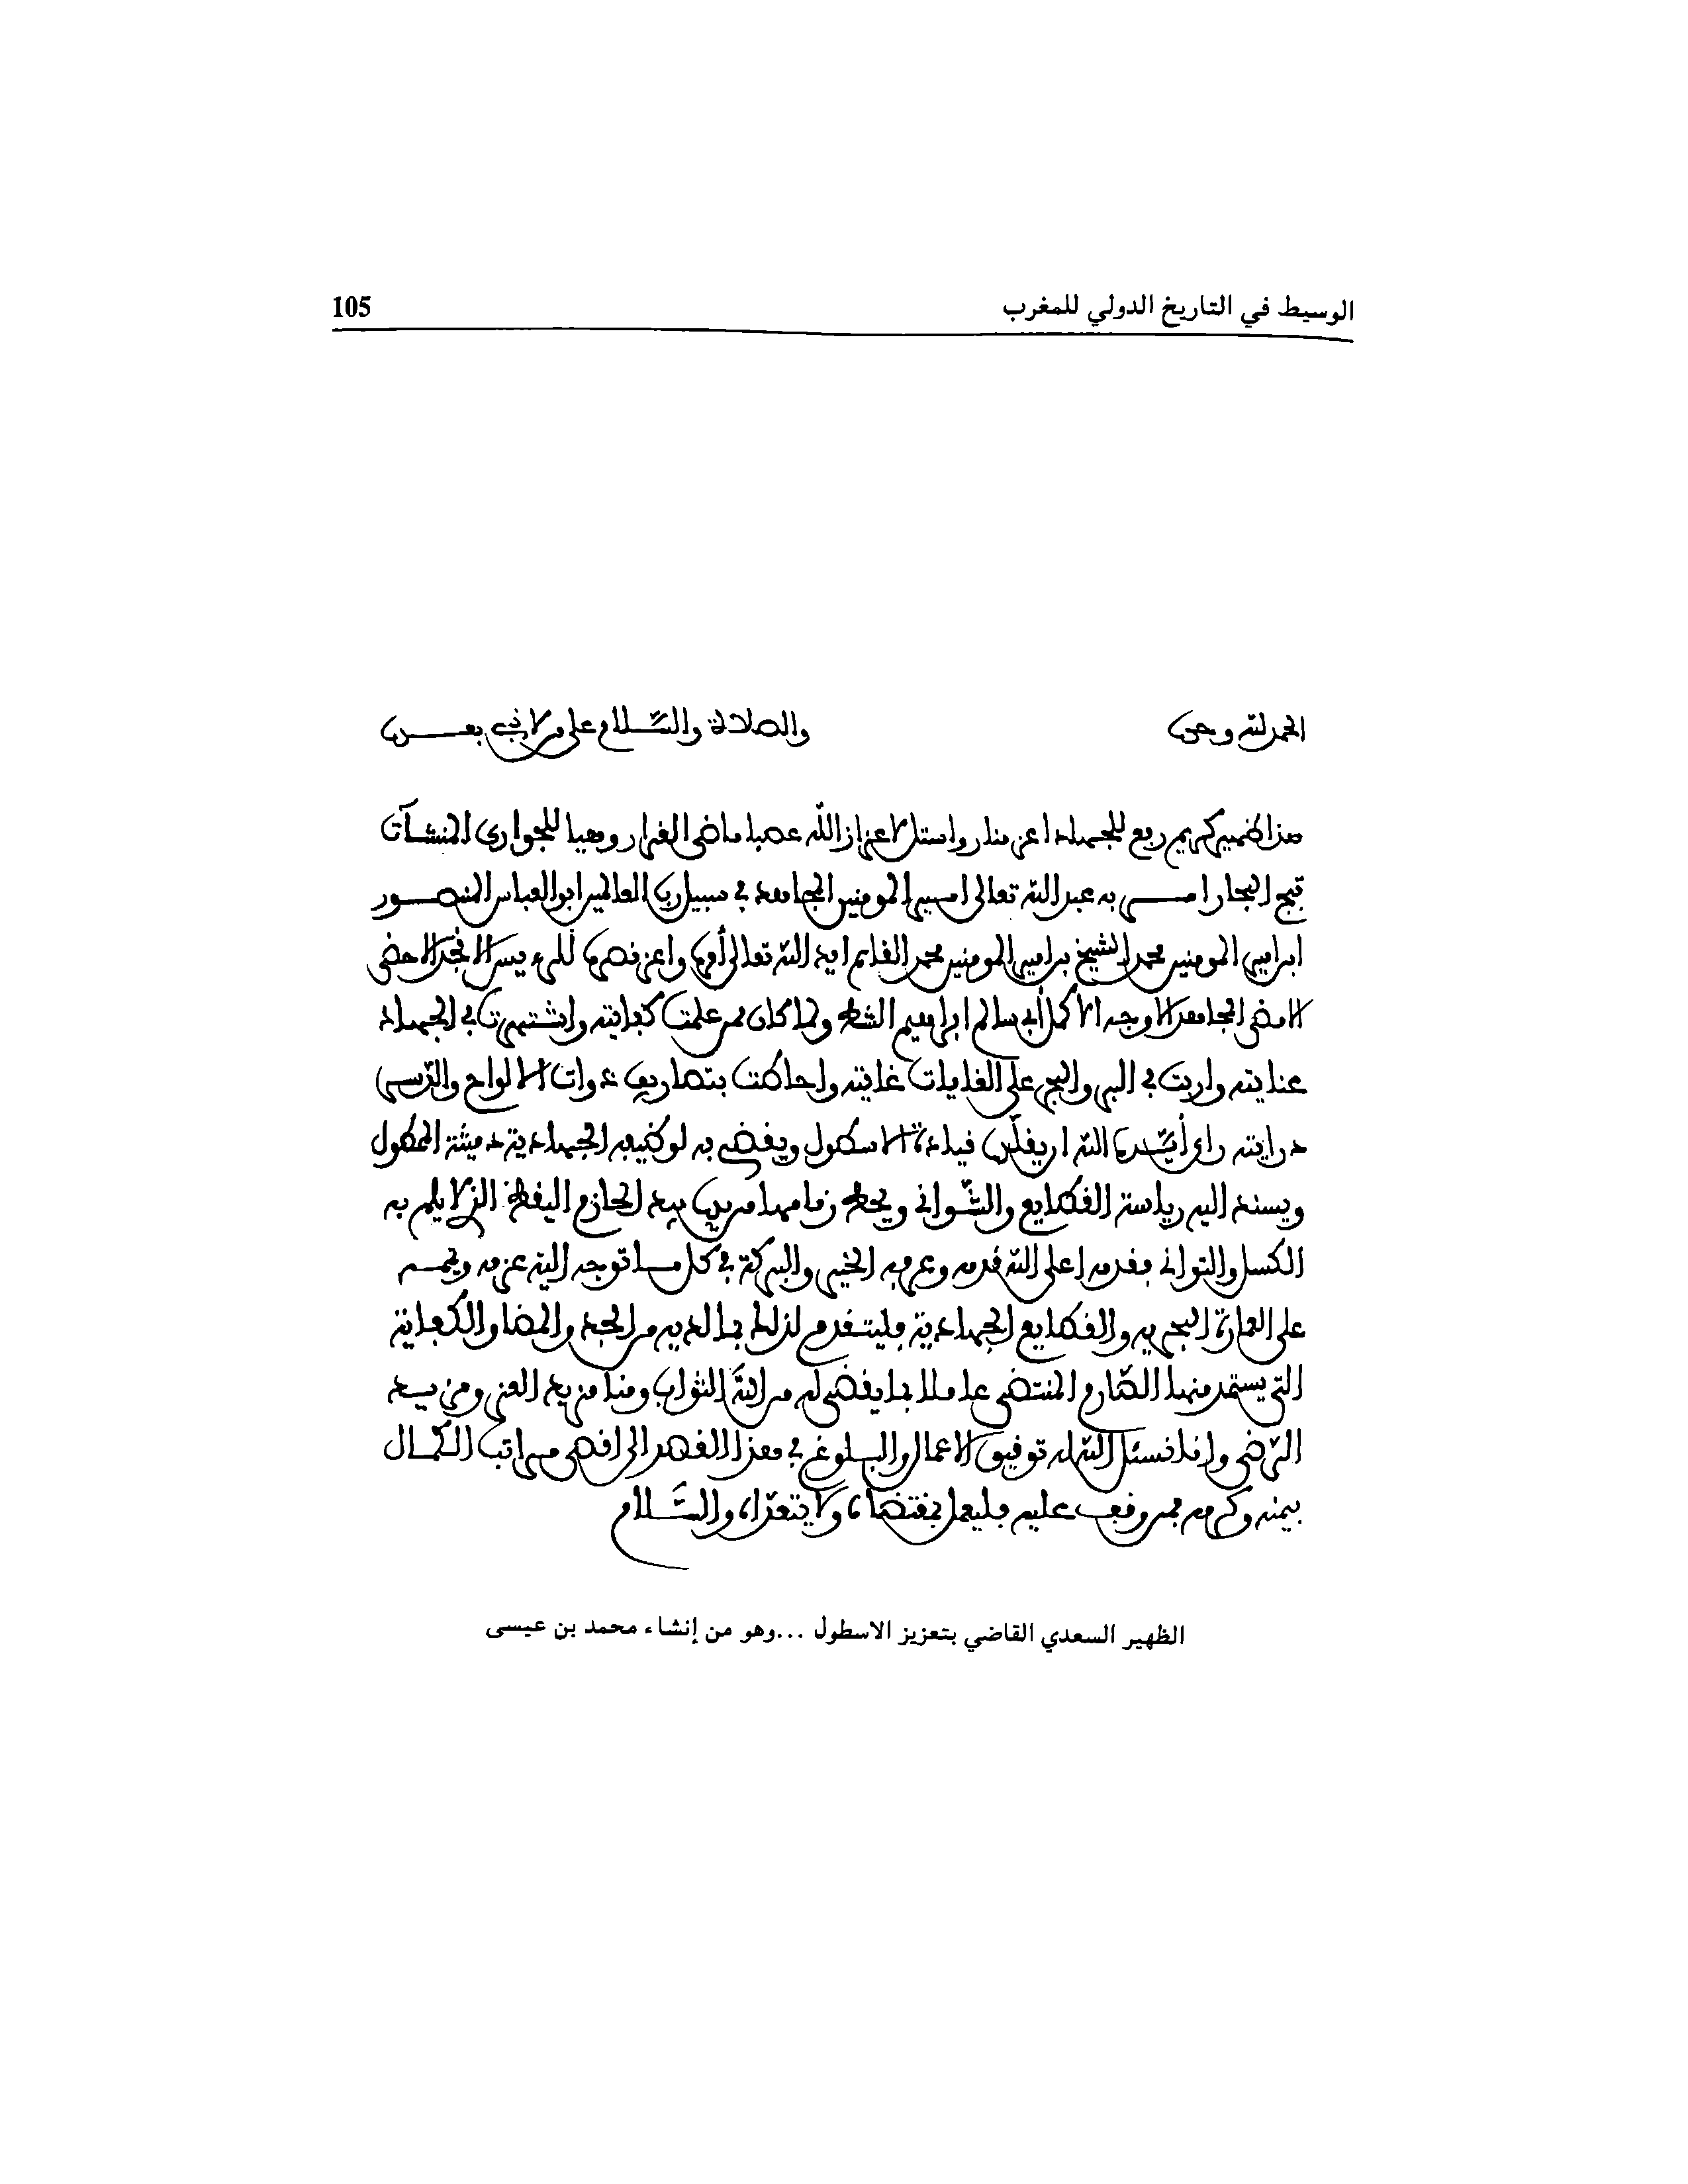 الوسيط في التاريخ الدولي للمغرب 105
الحمد لله وحده والصلاة والسلام على من لا نبي بعده
هذا ظهير كريم رفع للجهاد اعز منار واستل لاعزاز الله عضبا ماضي الغرار وهيا للجواري المنشآت
ثبج البحار امر به عبد الله تعالى امير المومنين المجاهد في سبيل رب العالمين ابو العباس المنصور
ابن امير المومنين محمد الشيخ بن امير المومنين محمد القايم ايد الله تعالى أمره واعز نصره للرءيس الانجد الاحضى
الامضى المجاهد الاوجه الاكمل أبي سالم ابراهيم الشط ولما كان ممن علمت كفايته واشتهرت في الجهاد
عنايته واربت في البر والبحر على الغايات غايته واحاطت بتصاريف ذوات الالواح والدسر
درايته راى أيده الله ان يقلده قيادة الاسطول ويفضي به لوظيفه الجهادية دميثة المطول
ويسند اليه رياسة القطايع والشواني ويحط زمامها من يده بيد الحازم اليقظ الذي لا يلم به
الكسل والتواني فقدمه اعلى الله قدمه وعرفه الخير والبركة في كل ما توجه اليه عزمه ويممه
على العمارة البحرية والقطايع الجهادية فليتقدم لذلك بما لديه من الجد والمضا والكفاية
التي يستمد منها الصارم المنتضى عاملا بما يفضي له من الله الثواب ومنا مزيد العز ومزيد
الرضى وانا نسئل الله له توفيق الاعمال والبلوغ في هذا القصد الى اقصى مراتب الكمال
بيمنه وكرمه فمن وقف عليه فليعمل بمقتضاه ولا يتعداه والسلام
الظهير السعدي القاضي بتعزيز الاسطول ...وهو من إنشاء محمد بن عيسى